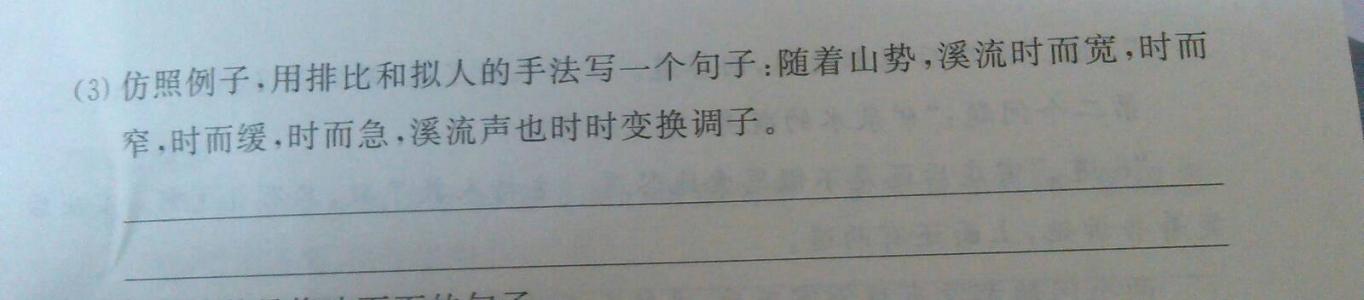 (3) 仿照例子,用排比和拟人的手法写一个句子:随着山势,溪流时而宽,时而
窄,时而缓,时而急,溪流声也时时变换调子。